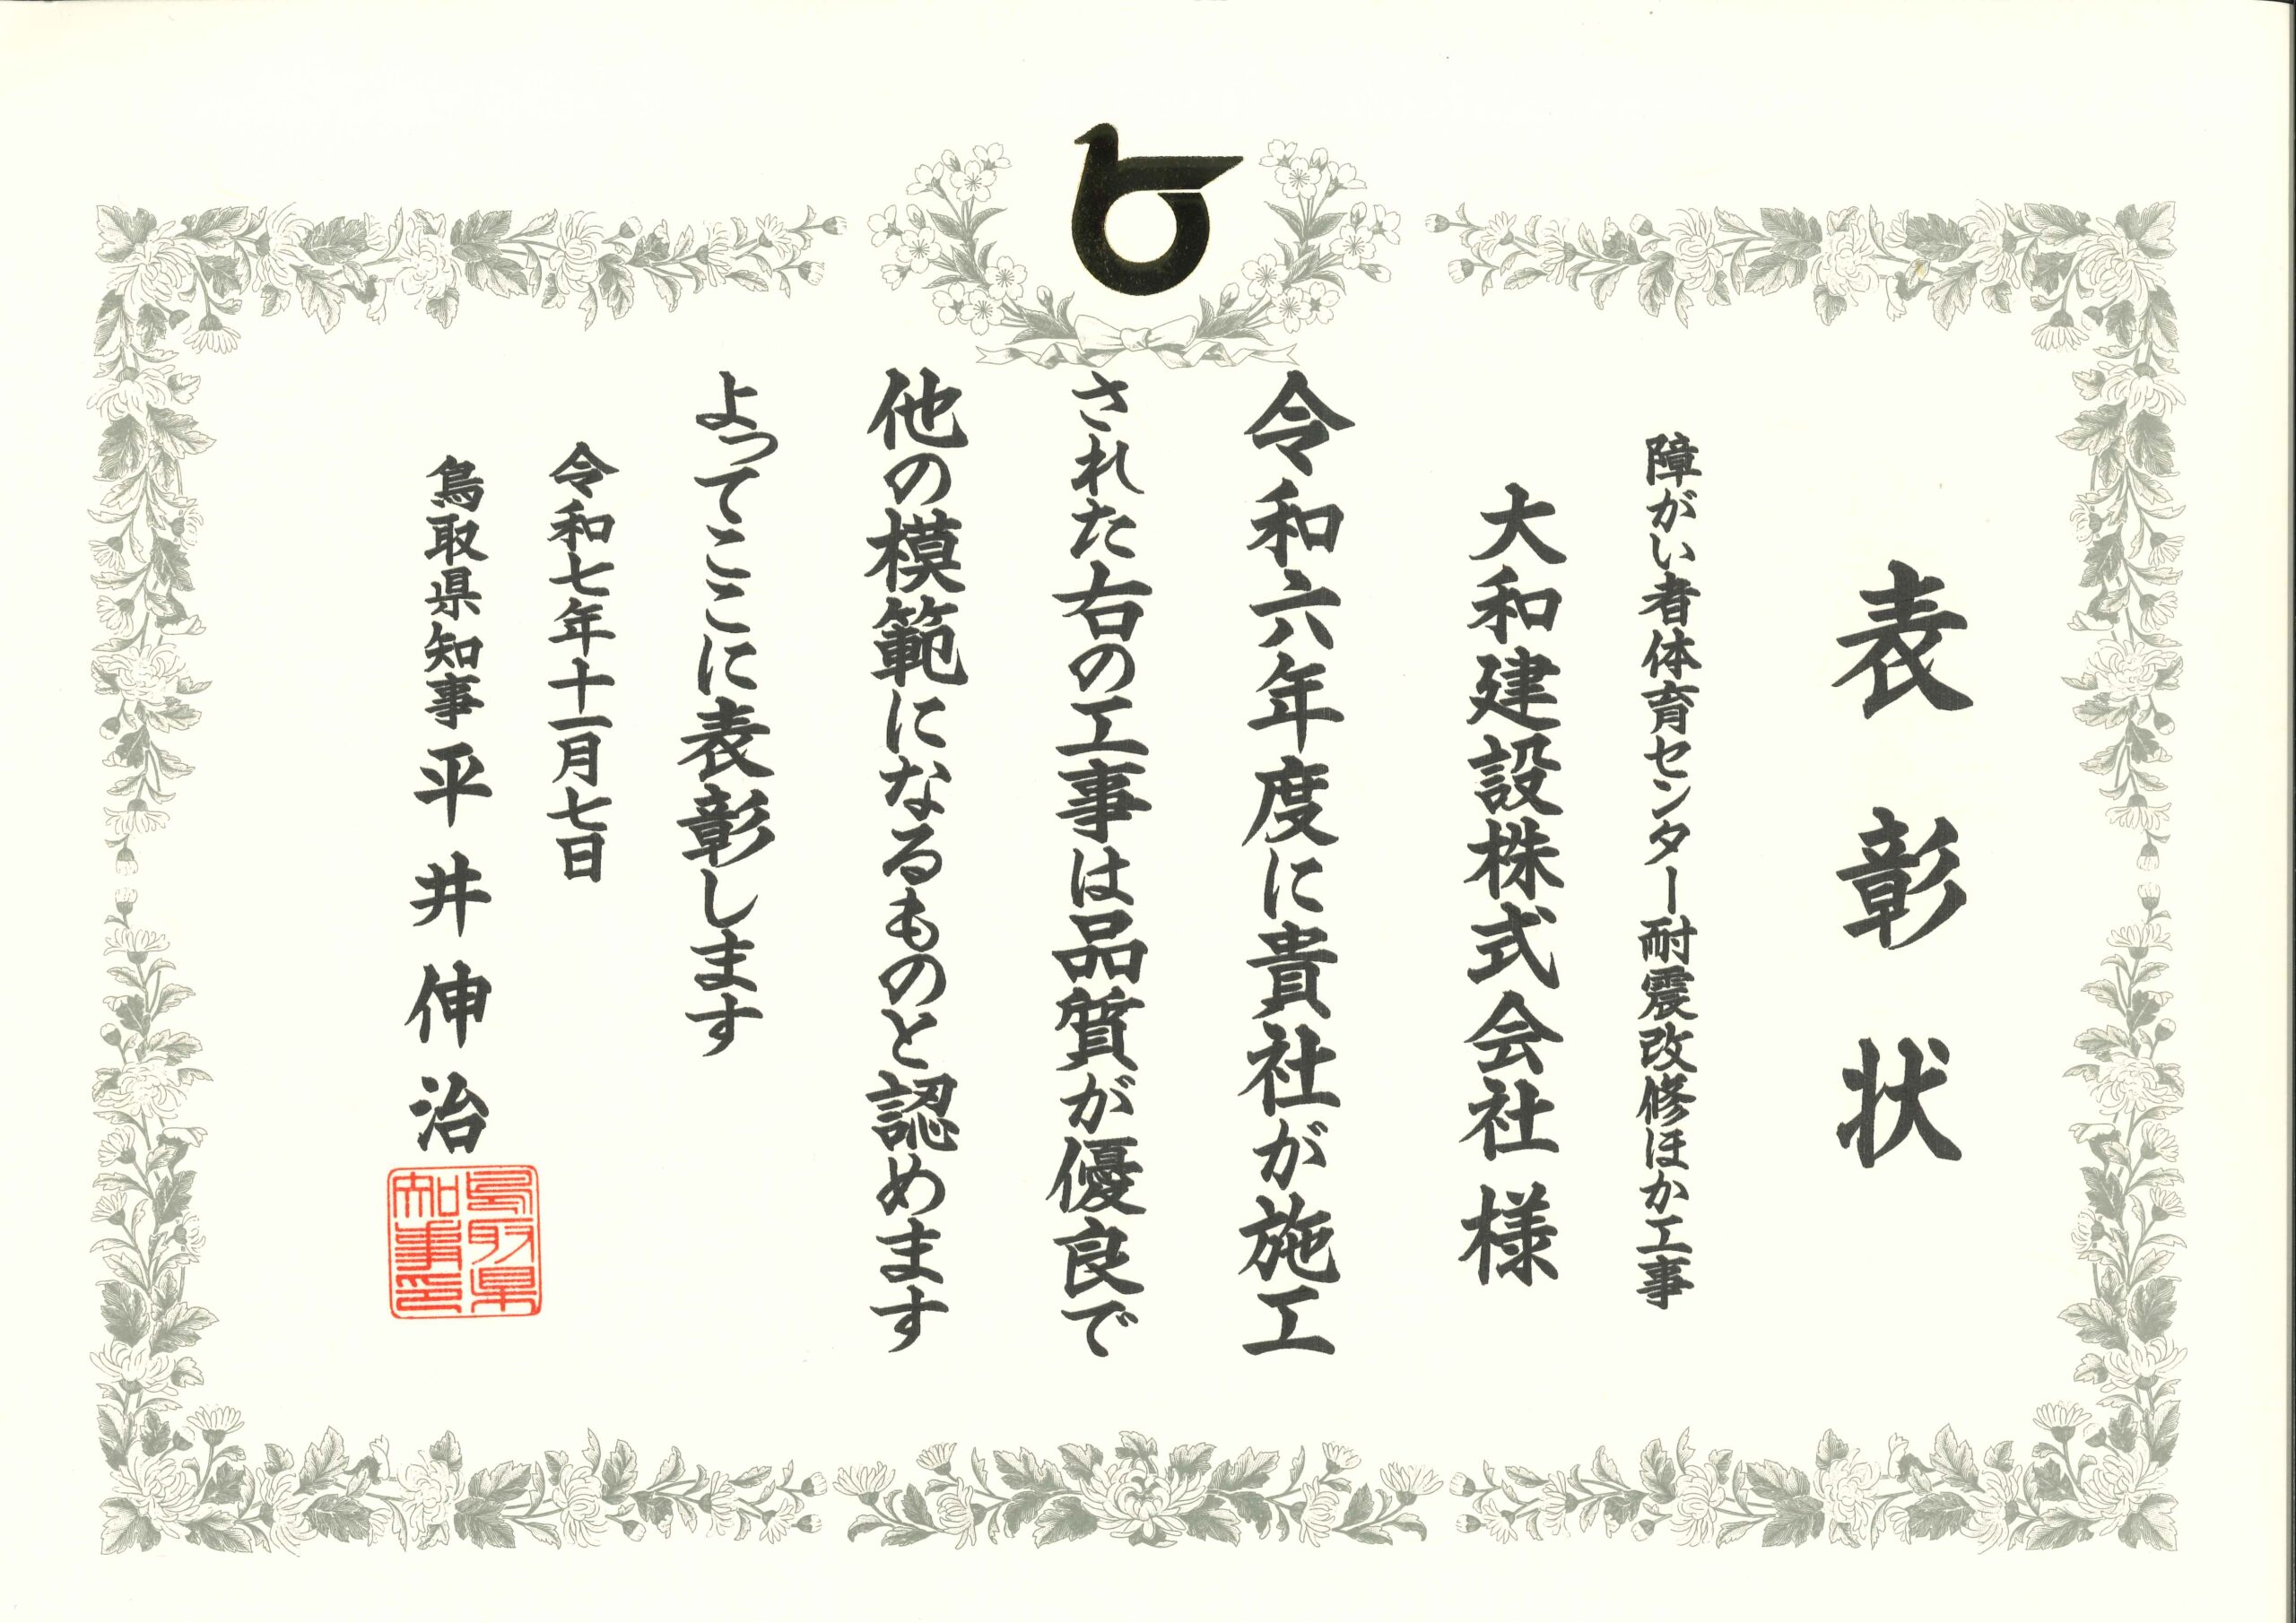 表彰状
障がい者体育センター耐震改修ほか工事
大和建設株式会社 様
令和六年度に貴社が施工
された右の工事は品質が優良で
他の模範になるものと認めます
よってここに表彰します
令和七年十一月七日
鳥取県知事 平井伸治
鳥取県
知事印